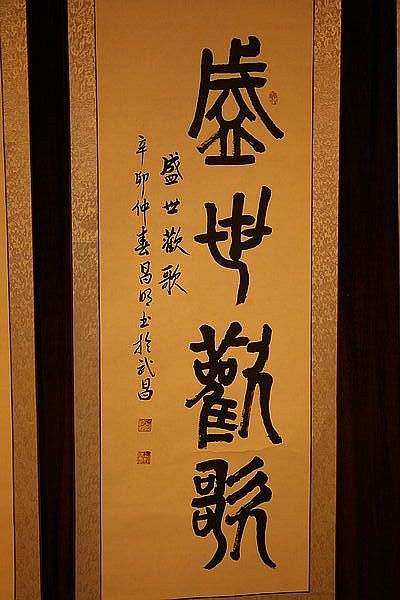 盛世歡歌
盛世歡歌
辛卯仲春昌明書於武昌